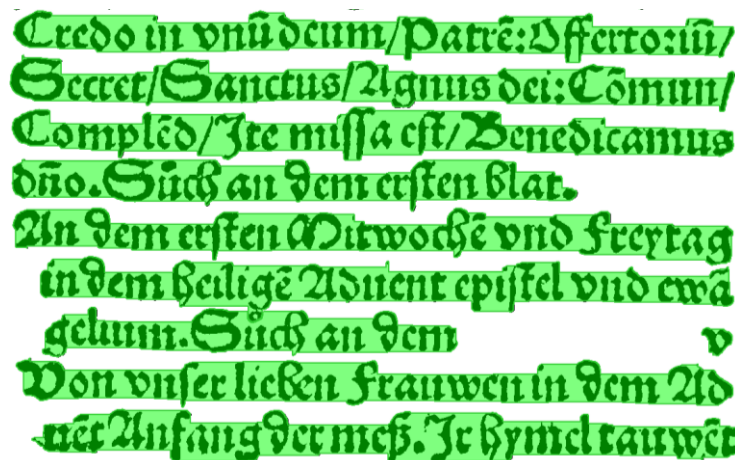 Credo in vnū deum/Patrē:Offerto:iū/
Secret/Sanctus/Agnus dei:Cōmun/
Complēd/Ite missa est/Benedicamus
dn̄o. Sůch an dem ersten blat.
An dem ersten Mitwochē vnd Freytag
in dem heiligē Aduent epistel vnd ewā
gelium. Sůch an dem v
Von vnser lieben Frauwen in dem Ad
uēt Anfang der meß. Ir hymel tauwēt